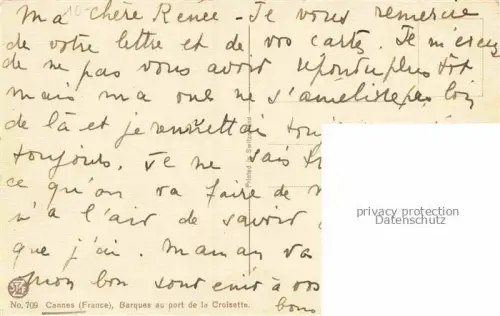 Ma chère Renée - Je vous remercie
de votre lettre et de vos cartes. Je m'excuse
de ne pas vous avoir répondu plus tôt
mais ma ne s'améliore pas loin
de là et je remettais
toujours. Je ne sais
ce qu'on va faire de
n'a l'air de savoir
que j'ai. Maman va
mon bon souvenir à vos
bons
Printed in Switzerland
privacy protection
Datenschutz
No. 709 Cannes (France), Barques au port de la Croisette.